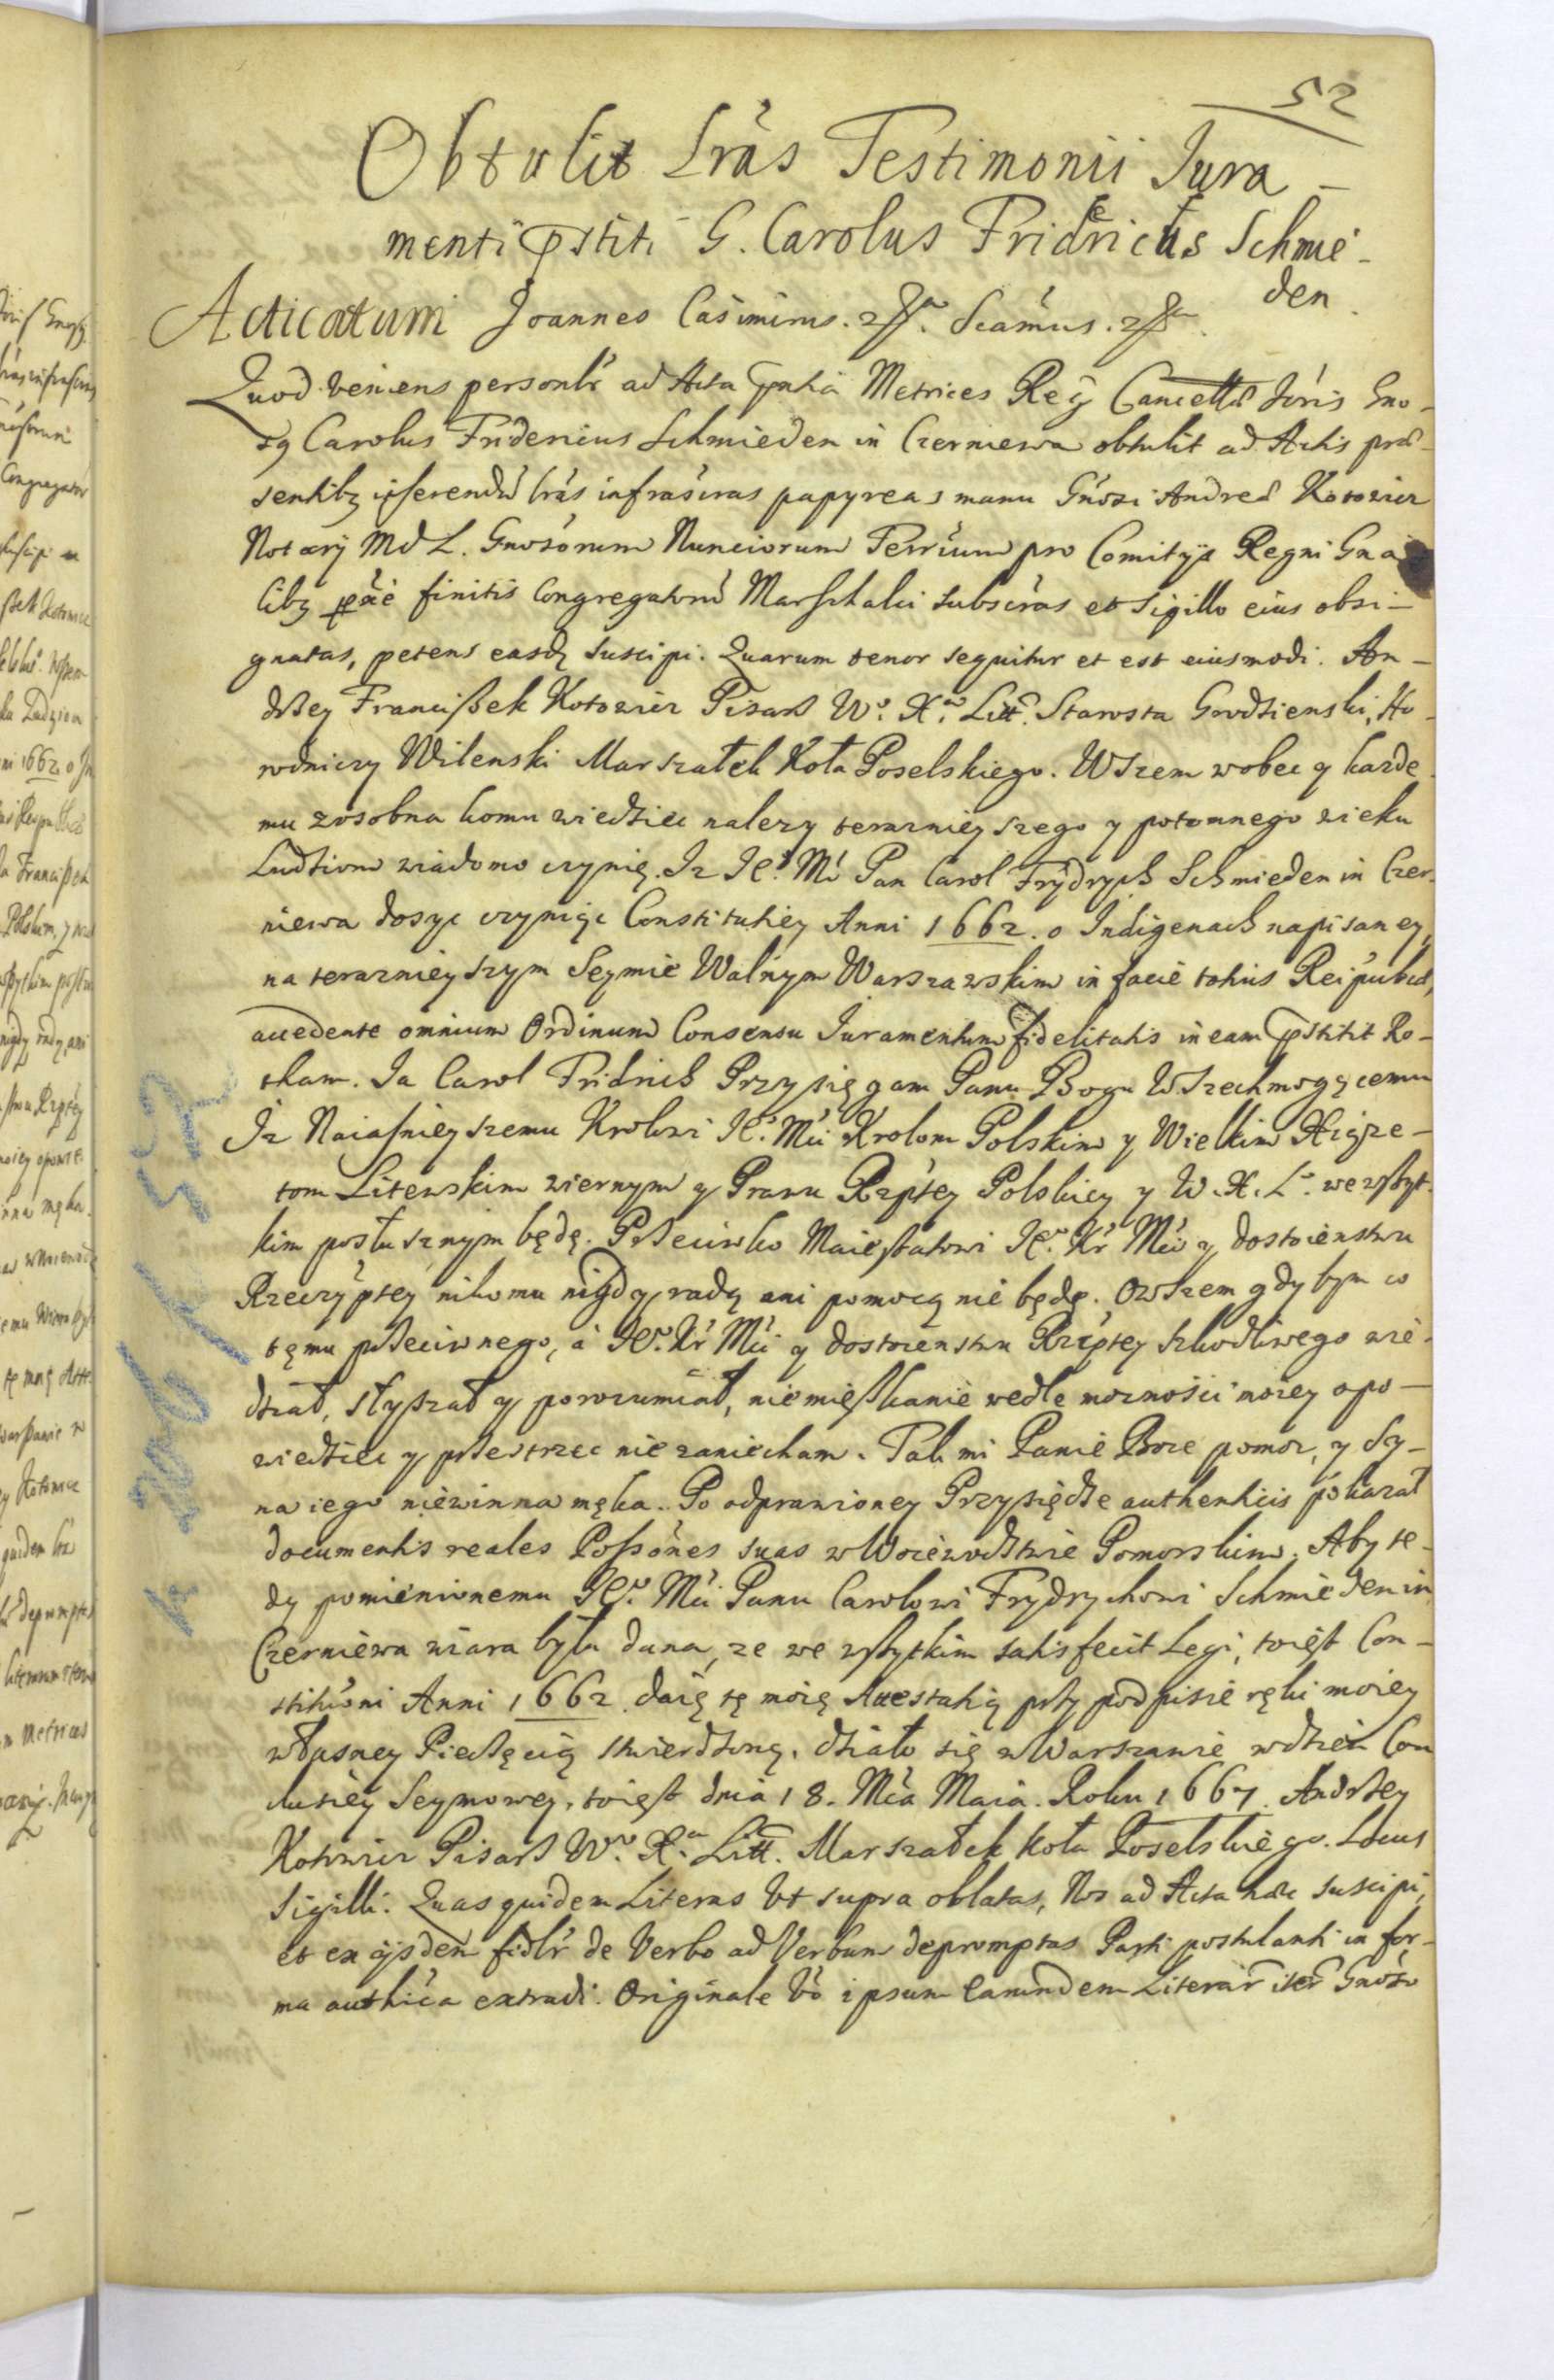 52
Obtulit Lrás Testimonii Jura-
menti pstiti G. Carolus Fridricus Schmie-
den.
Acticatum Joannes Casimirus. Scámus.
Quod veniens personlr ad Acta Metrices Rey Cancellæ Gno-
sq Carolus Fridericus Schmieden in Czerniewa obtulit ad Actis præ-
sentibz iserendú lrás infrascras papyreas manu Gnosi Andreæ Kotowicz
Notarij M D L. Gnosorum Nunciorum Terrium pro Comitijs Regni Gnã
libz finitis Congregatorú Marschalci subscras et Sigillo eius obsi-
gnatas, petens easdz suscipi. Quarum tenor sequitur et est eiusmodi. An-
drzey Franciszek Kotowicz Pisarz Wo. Xa. Litt. Starosta Grodzienski, Ho-
rodniczy Wilenski Marszałek Koła Poselskiego. Wszem wobec y kazde
mu zosobna komu wiedziec nalezy teraznieyszego y potomnego wieku
Ludziom wiadomo czynię. Iz Je. Mć Pan Carol Frydrych Schmieden in Czer-
niewa dosyc czyniąc Constitutiey Anni 1662. o Indigenach napisaney,
na teraznieyszym Seymie Walnym Warszawskim in facie totius Reipubcæ,
accedente omnium Ordinum Consensu Juramentum fidelitatis in eam pstitit Ro-
tham. Ia Carol Fridrich Przysięgam Panu Bogu Wszechmogącemu
Iz Naiaśnieyszemu Krolowi Je. Mći Krolom Polskim y Wielkim Xiąze-
tom Litewskim wiernym y Panu Rzptey Polskiey y W. X. L. we wszyt-
kim posłusznym będę. Przeciwko Maiestatowi Je. Kr Mći y dostoienstwu
Rzeczyptey nikomu nigdy radą ani pomocą nie będę. Owszem gdybym co
temu przeciwnego, á Je. Kr Mći y dostoienstwu Rzeptey szkodliwego wie-
dział, słyszał y porozumiał, niemieszkanie wedle moznosci moiey opo-
wiedziec y przestrzec nie zaniecham. Tak mi Panie Boze pomoz, y Sy-
na iego niewinna męka. Po odprawioney Przysiędze authenticis pokazał
documentis reales Possones suas w Woiewodztwie Pomorskim. Aby te-
dy pomienionemu Je. Mći Panu Carolowi Frydrychowi Schmieden in
Czerniewa wiara była dana, ze we wszytkim satisfecit Legi, toiest Con-
stituoni Anni 1662. daię tę moię Attestatią przy podpisie ręki moiey
własney Pieczęcią stwierdzoną. działo się w Warszawie w dzien Con
clusiey Seymowey, toiest dnia 18. Mca Maia. Roku 1667. Andrzey
Kotowicz Pisarz Wo. Xa. Litt. Marszałek koła Poselskiego. Locus
Sigilli. Quas quidem Literas Ut supra oblatas, Nos ad Acta hæc suscipi,
et ex ijsdem fidlr de Verbo ad Verbum depromptas Parti postulanti in for-
ma authica extradi. Originale Vo ipsum earundem Literar iter Gnoso